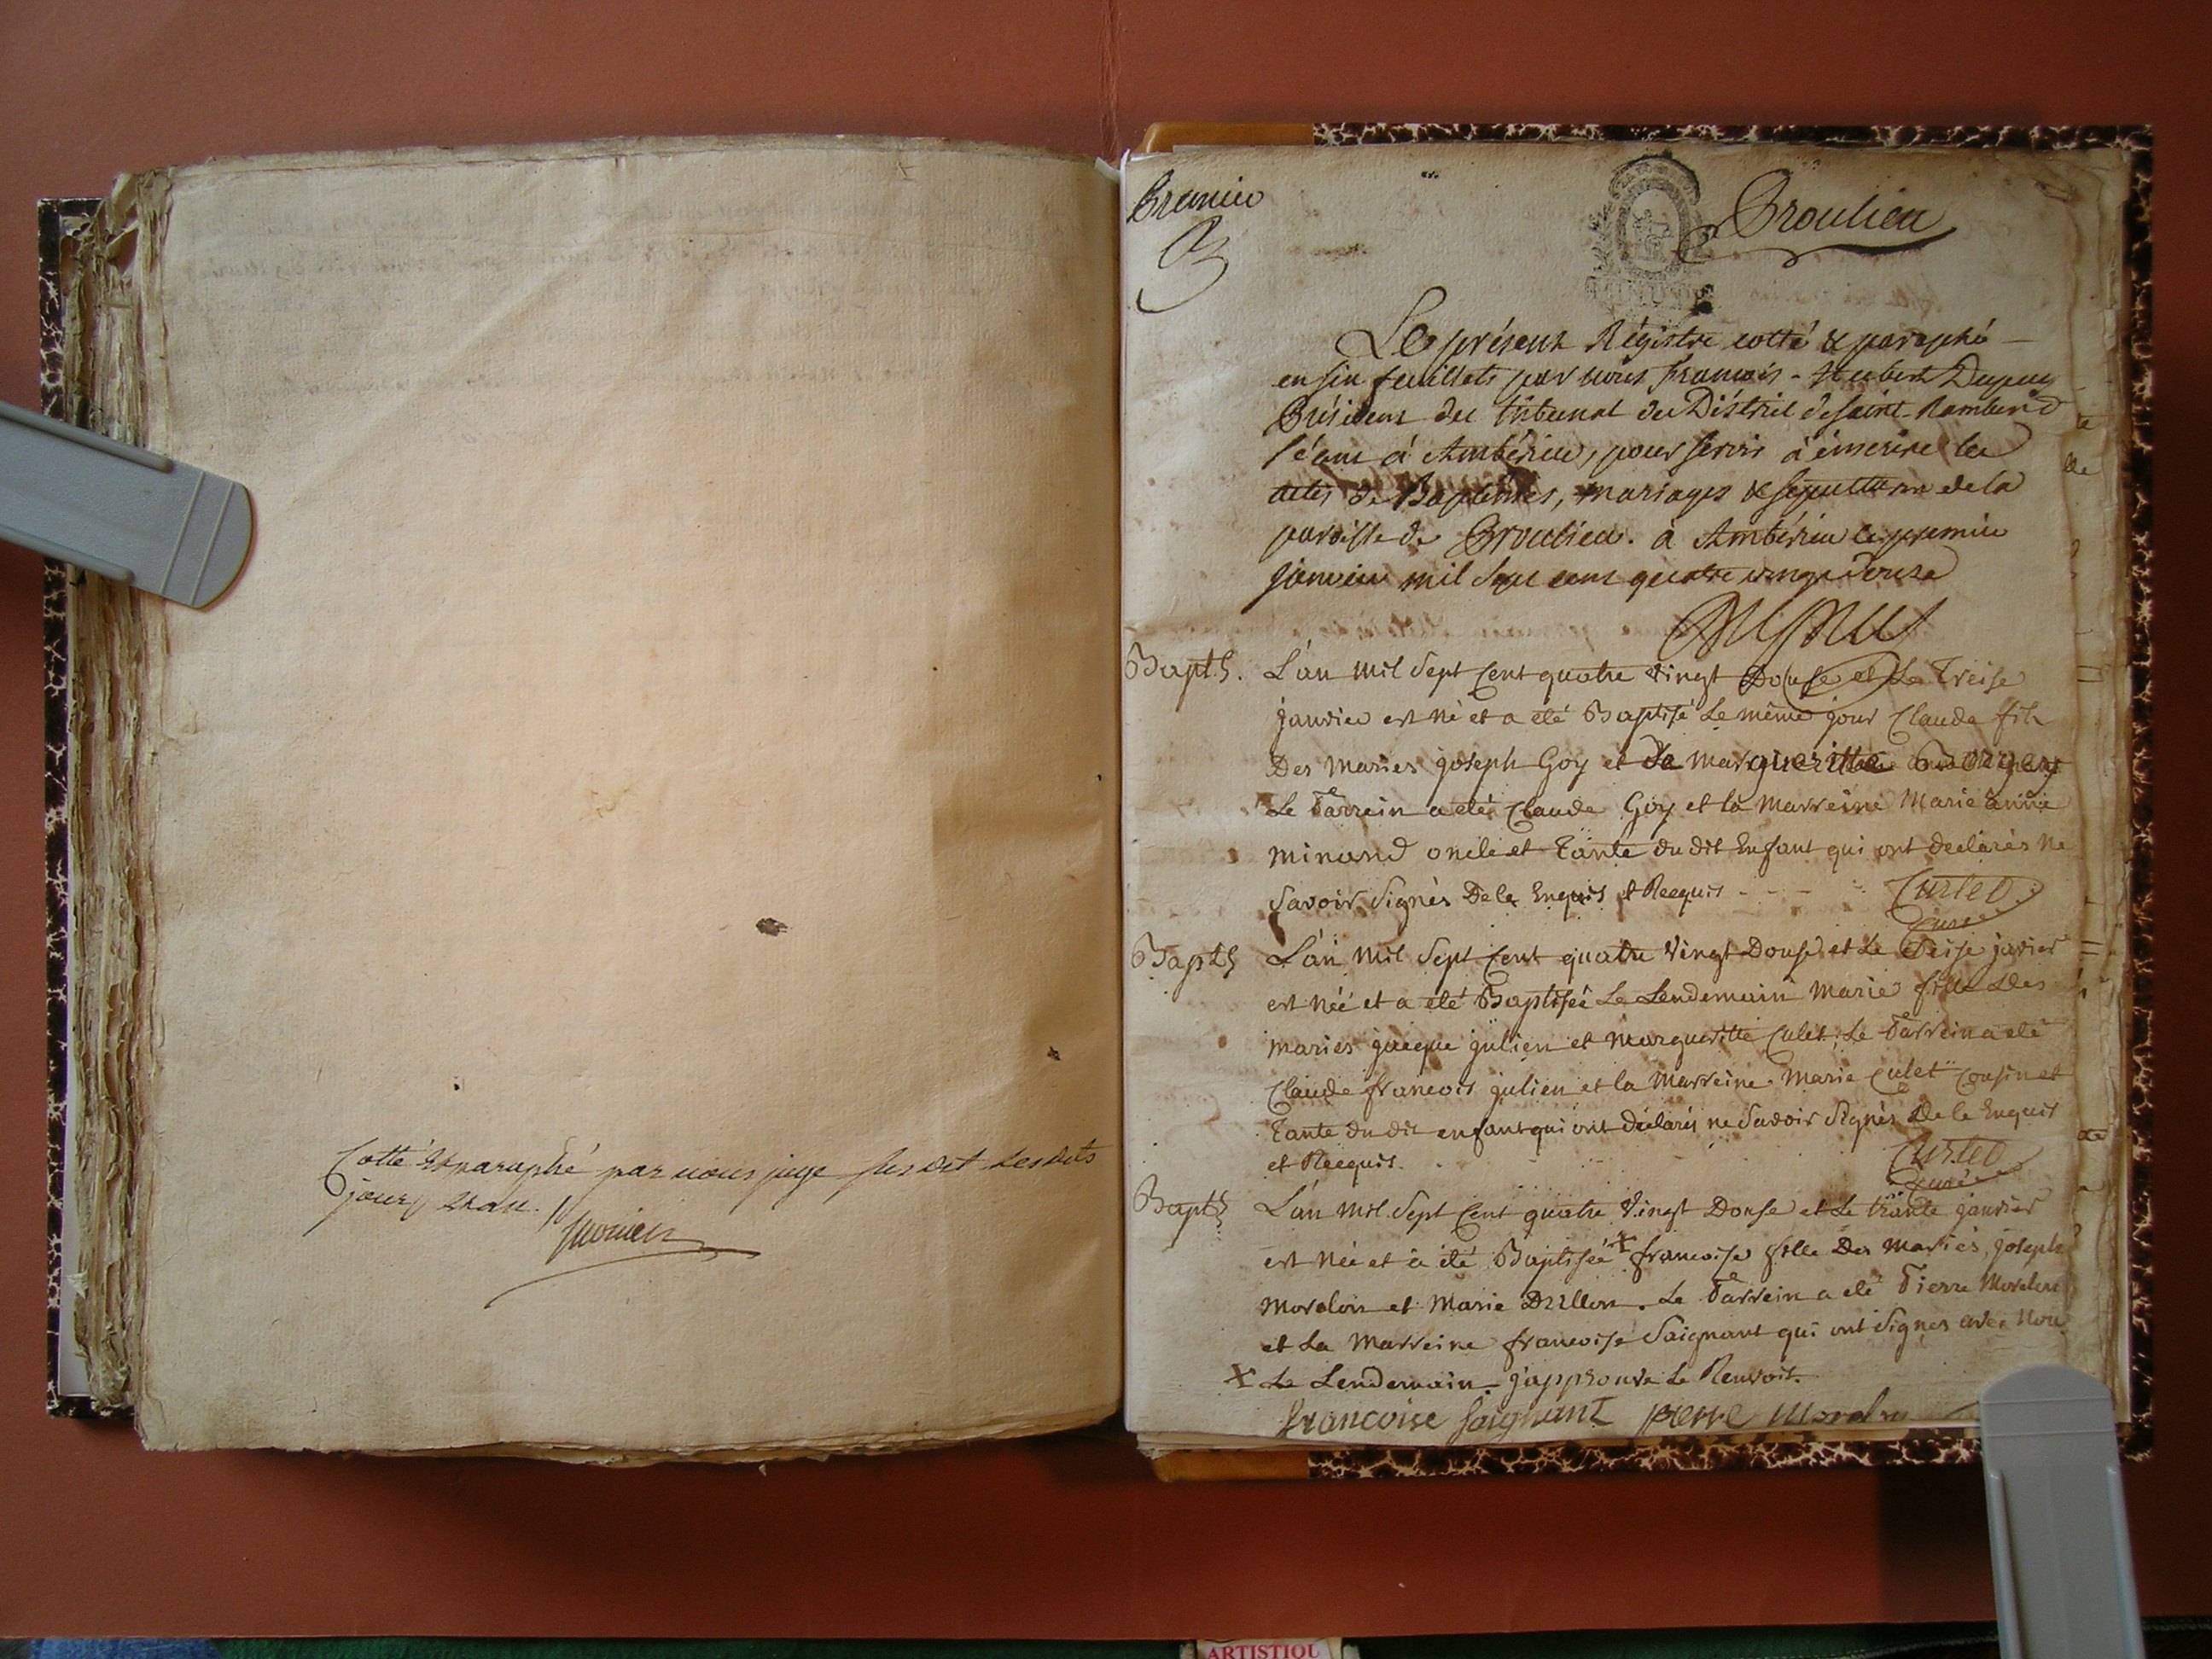 Cotté et paraphé par nous juge susdit lesdits
jour et an.
Premier
Proulieu
Le présent Régistre cotté & paraphé
en six feuillets par nous François-Hubert Dupuy
Président du tribunal du District de Saint-Rambert
séant à Ambérieu, pour servir à inscrire les
actes de Baptêmes, mariages & sepultures de la
paroisse de Proulieu. à Ambérieu le premier
janvier mil sept cent quatre vingt douze
Bapt.
L'an mil Sept Cent quatre vingt Douse et Le Treise
janvier est né et a été Baptisé Le même jour Claude fils
Des mariés joseph Goy et de margueritte
Le Parrein a été Claude Goy et la marreine Marie anne
minand oncle et Tante du dit Enfant qui ont declarés ne
Savoir Signés De le Enquis et Recquis
Curlet
Curé
Bapt.
L'an mil Sept Cent quatre vingt Douse et Le Seise javier
est née et a été Baptiseé Le Lendemain marie fille Des
mariés jacque julien et margueritte Culet. Le Parrein a été
Claude francois julien et la marreine marie Culet Cousin et
Tante du dit enfant qui ont déclarés ne Savoir Signés De le Enquis
et Recquis.
Curlet
Curé
Bapt.
L'an mil Sept Cent quatre Vingt Douse et Le trante janvier
est née et à été Baptisée + francoise fille Des mariés joseph
morelon et Marie Drillon. Le Parrein a été Pierre Morelon
et La Marreine francoise Saignant qui ont Signés avec Nous
+ Le Lendemain j'approuve Le Renvoit.
francoise saignant pierre morelon
ARTISTIQU